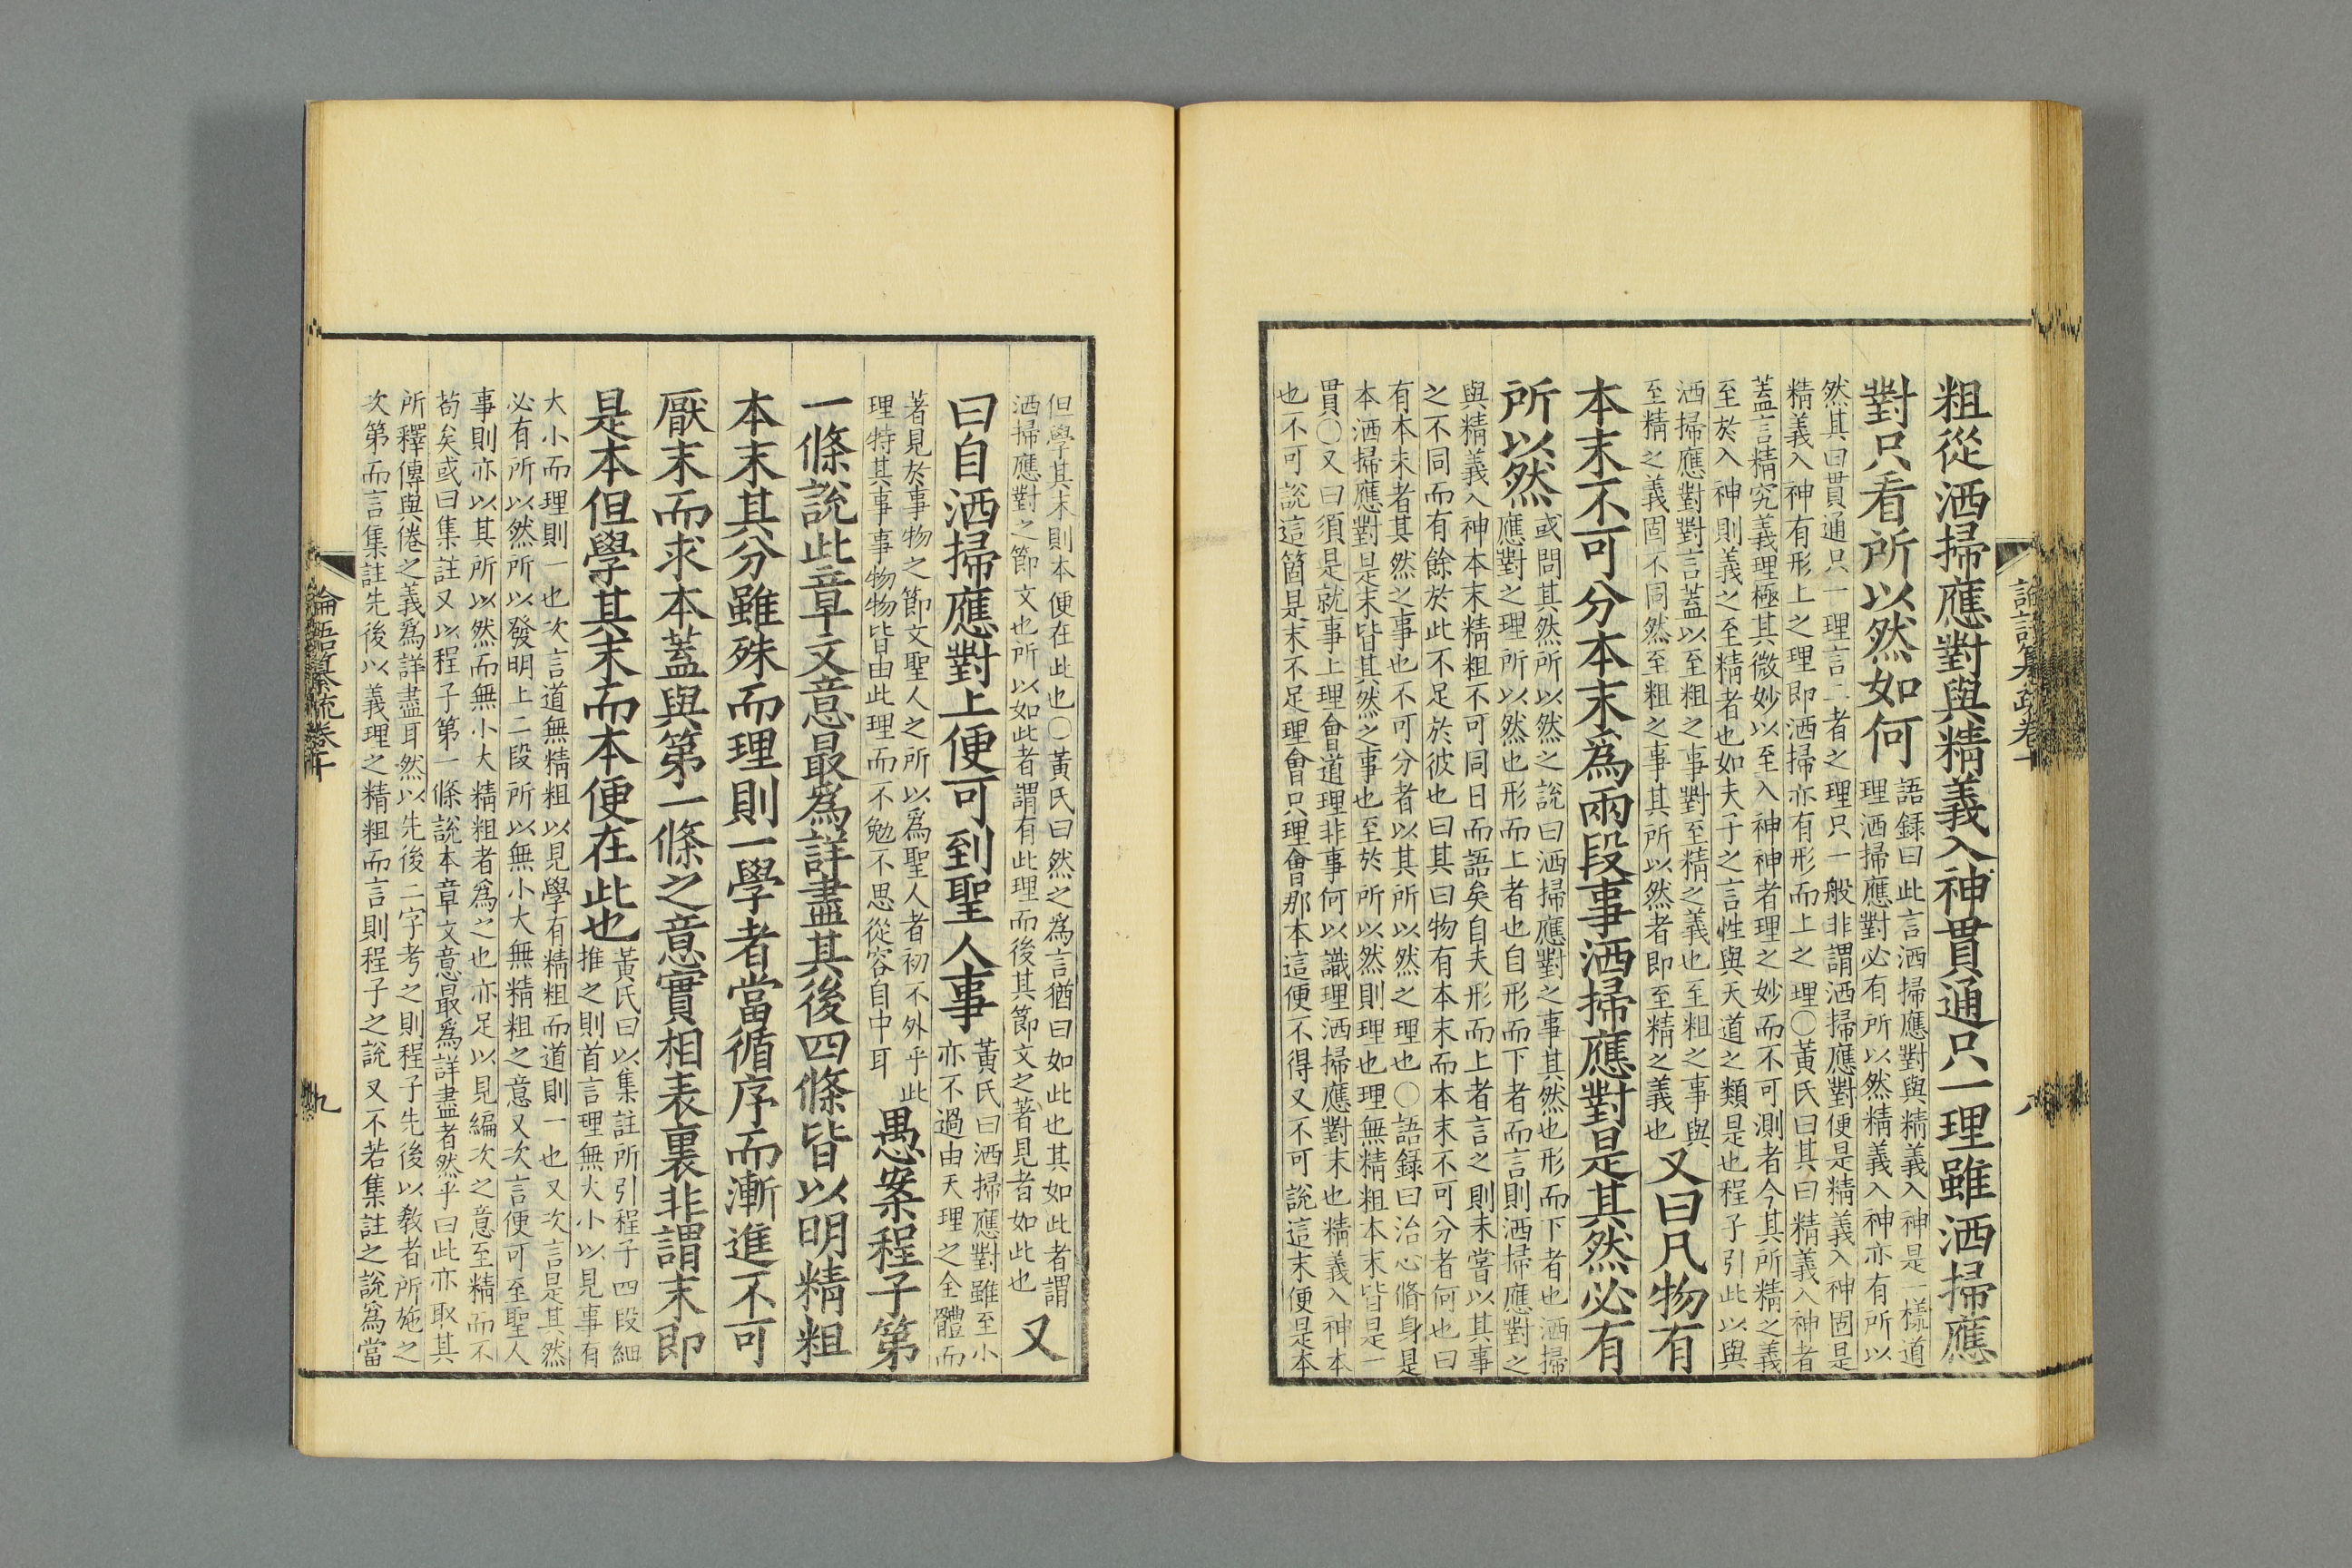 粗從洒掃應對與精義入神貫通只一理雖洒掃應
對只看所以然如何
語録曰此言洒掃應對與精義入神是一樣道
理洒掃應對必有所以然精義入神亦有所以
然其曰貫通只一理言二者之理只一般非謂洒掃應對便是精義入神固是
精義入神有形上之理即洒掃亦有形而上之理〇黃氏曰其曰精義入神者
蓋言精究義理極其微妙以至入神神者理之妙而不可測者今其所精之義
至於入神則義之至精者也如夫子之言性與天道之類是也程子引此以與
洒掃應對對言蓋以至粗之事對至精之義也至粗之事與
至精之義固不同然至粗之事其所以然者即至精之義也
又曰凡物有
本末不可分本末爲兩段事洒掃應對是其然必有
所以然
或問其然所以然之說曰洒掃應對之事其然也形而下者也洒掃
應對之理所以然也形而上者也自形而下者而言則洒掃應對之
與精義入神本末精粗不可同日而語矣自夫形而上者言之則未嘗以其事
之不同而有餘於此不足於彼也曰其曰物有本末而本末不可分者何也曰
有本末者其然之事也不可分者以其所以然之理也〇語録曰治心脩身是
本洒掃應對是末皆其然之事也至於所以然則理也理無精粗本末皆是一
貫〇又曰須是就事上理會道理非事何以識理洒掃應對末也精義入神本
也不可說這箇是末不足理會只理會那本這便不得又不可說這末便是本
八
但學其末則本便在此也〇黃氏曰然之爲言猶曰如此也其如此者謂
洒掃應對之節文也所以如此者謂有此理而後其節文之著見者如此也
又
曰自洒掃應對上便可到聖人事
黃氏曰洒掃應對雖至小
亦不過由天理之全體而
著見於事物之節文聖人之所以爲聖人者初不外乎此
理特其事事物物皆由此理而不勉不思從容自中耳
愚案程子第
一條說此章文意最爲詳盡其後四條皆以明精粗
本末其分雖殊而理則一學者當循序而漸進不可
厭末而求本蓋與第一條之意實相表裏非謂末即
是本但學其末而本便在此也
黃氏曰以集註所引程子四段細
推之則首言理無大小以見事有
大小而理則一也次言道無精粗以見學有精粗而道則一也又次言是其然
必有所以然所以發明上二段所以無小大無精粗之意又次言便可至聖人
事則亦以其所以然而無小大精粗者爲之也亦足以見編次之意至精而不
苟矣或曰集註又以程子第一條說本章文意最爲詳盡者然乎曰此亦取其
所釋傳與倦之義爲詳盡耳然以先後二字考之則程子先後以教者所施之
次第而言集註先後以義理之精粗而言則程子之說又不若集註之說爲當
論語纂疏卷十
九